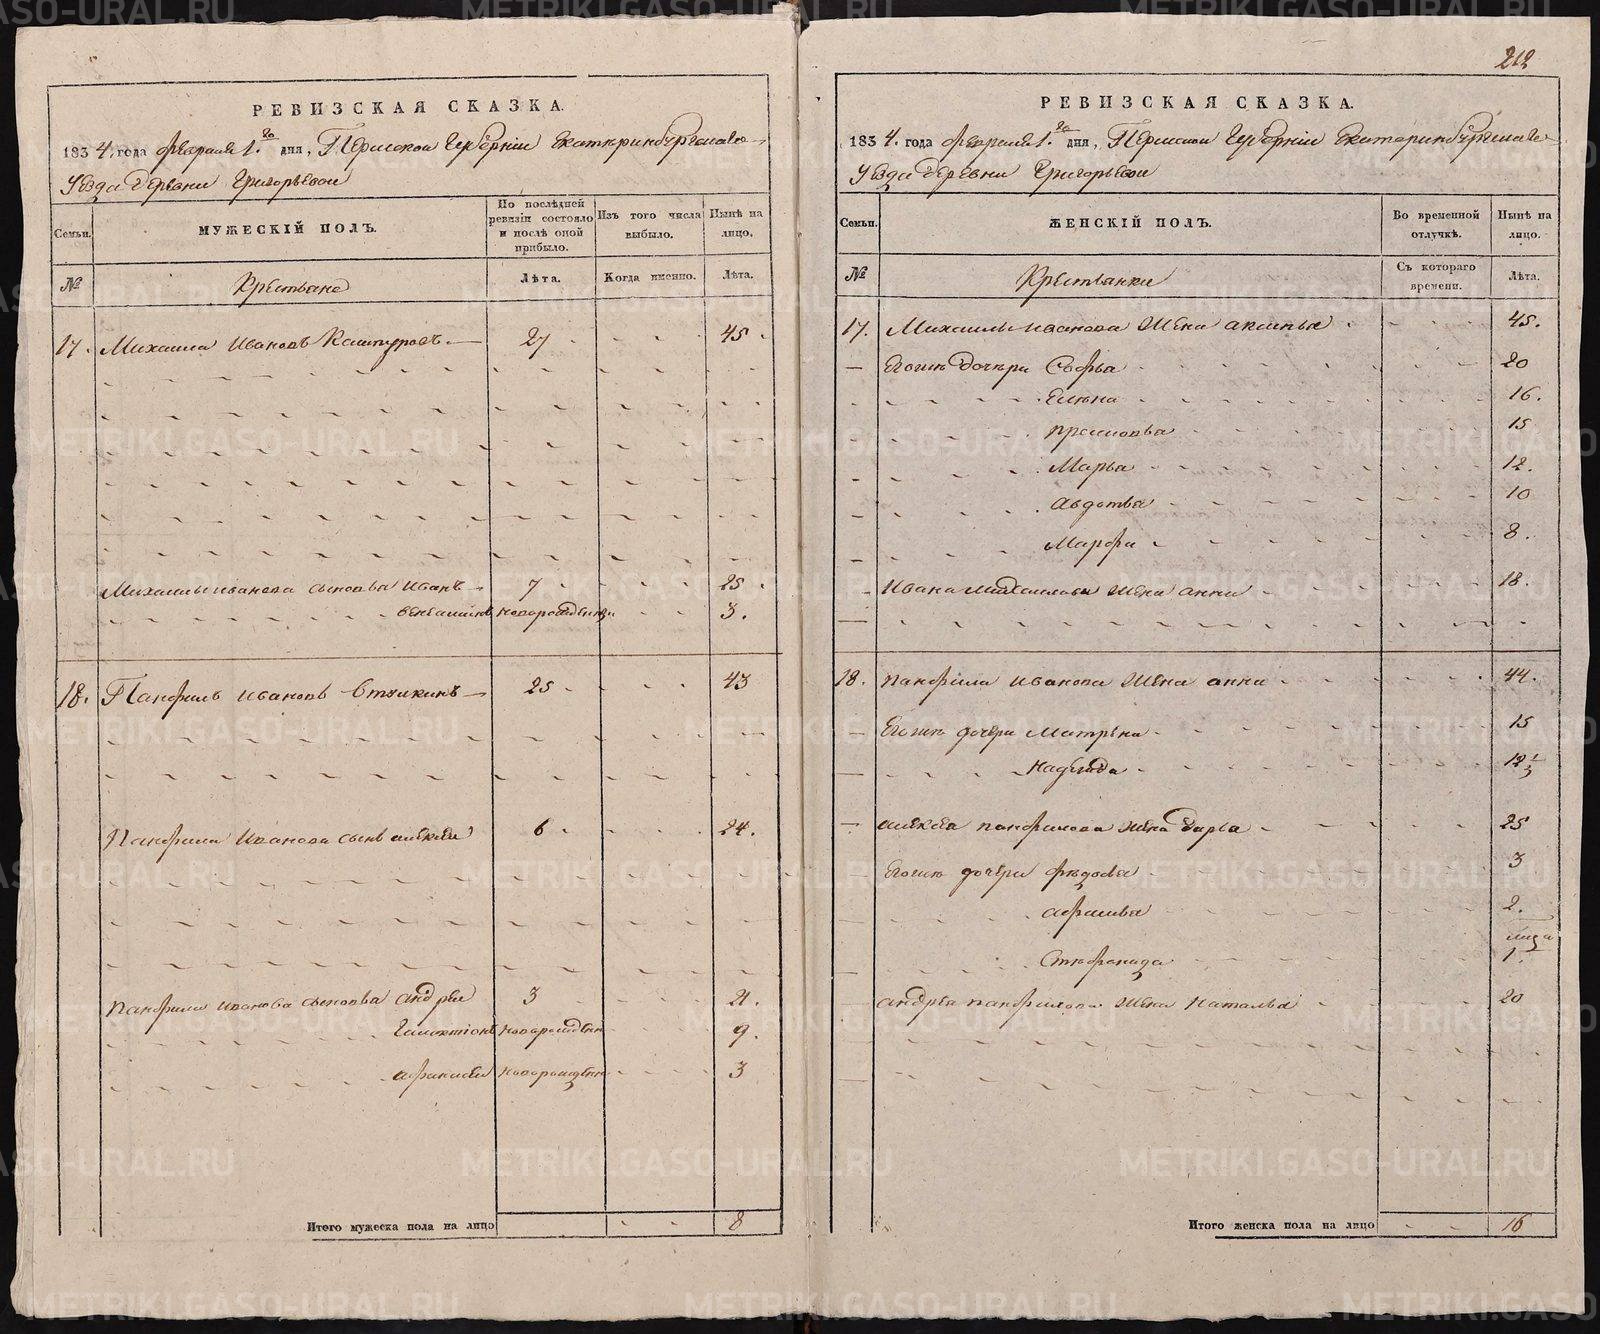 212
РЕВИЗСКАЯ СКАЗКА.
1834 года февраля 1.го дня, Пермской Губернiи Екатеринбургскаго
Уезда деревни Григорьевой
Семьи.
МУЖЕСКIЙ ПОЛЪ.
По послѣдней ревизiи состояло и послѣ оной прибыло.
Изъ того числа выбыло.
Нынѣ на лицо.
№
Крестьяне
Лѣта.
Когда именно.
Лѣта.
17. Михаила Ивановъ 27 45
Михаилы Иванова сыновья Иванъ 7 25
новорожденъ 3.
18. Панфилъ Ивановъ 25 43
Панфила Иванова сынъ алексеи 6 24.
Панфила Иванова сыновья андреи 3 21.
Галактiонъ новорожденъ 9.
афанасеи новорожденъ 3
Итого мужеска пола на лицо 8
РЕВИЗСКАЯ СКАЗКА.
1834. года февраля 1.го дня, Пермской Губернiи Екатеринбургскаго
Уезда деревни Григорьевой
Семьи.
ЖЕНСКIЙ ПОЛЪ.
Во временной отлучкѣ.
Нынѣ на лицо.
№
Крестьянки
Съ котораго времени.
Лѣта.
17. Михаилы Иванова жена аксинья 45.
Егоже дочери Софья 20
Елена 16.
прасковья 15
Марья 12.
авдотья 10
Марфа 8.
Ивана михаилова жена анна 18.
18. панфила Иванова жена анна 44.
Егоже дочери Матрена 15
надежда 12 1/3
алексея панфилова жена дарья 25
Егоже дочери федосья 3
афимья 2.
Стефанида 1.
андрея панфилова жена Наталья 20
Итого женска пола на лицо 16
METRIKI.GASO-URAL.RU